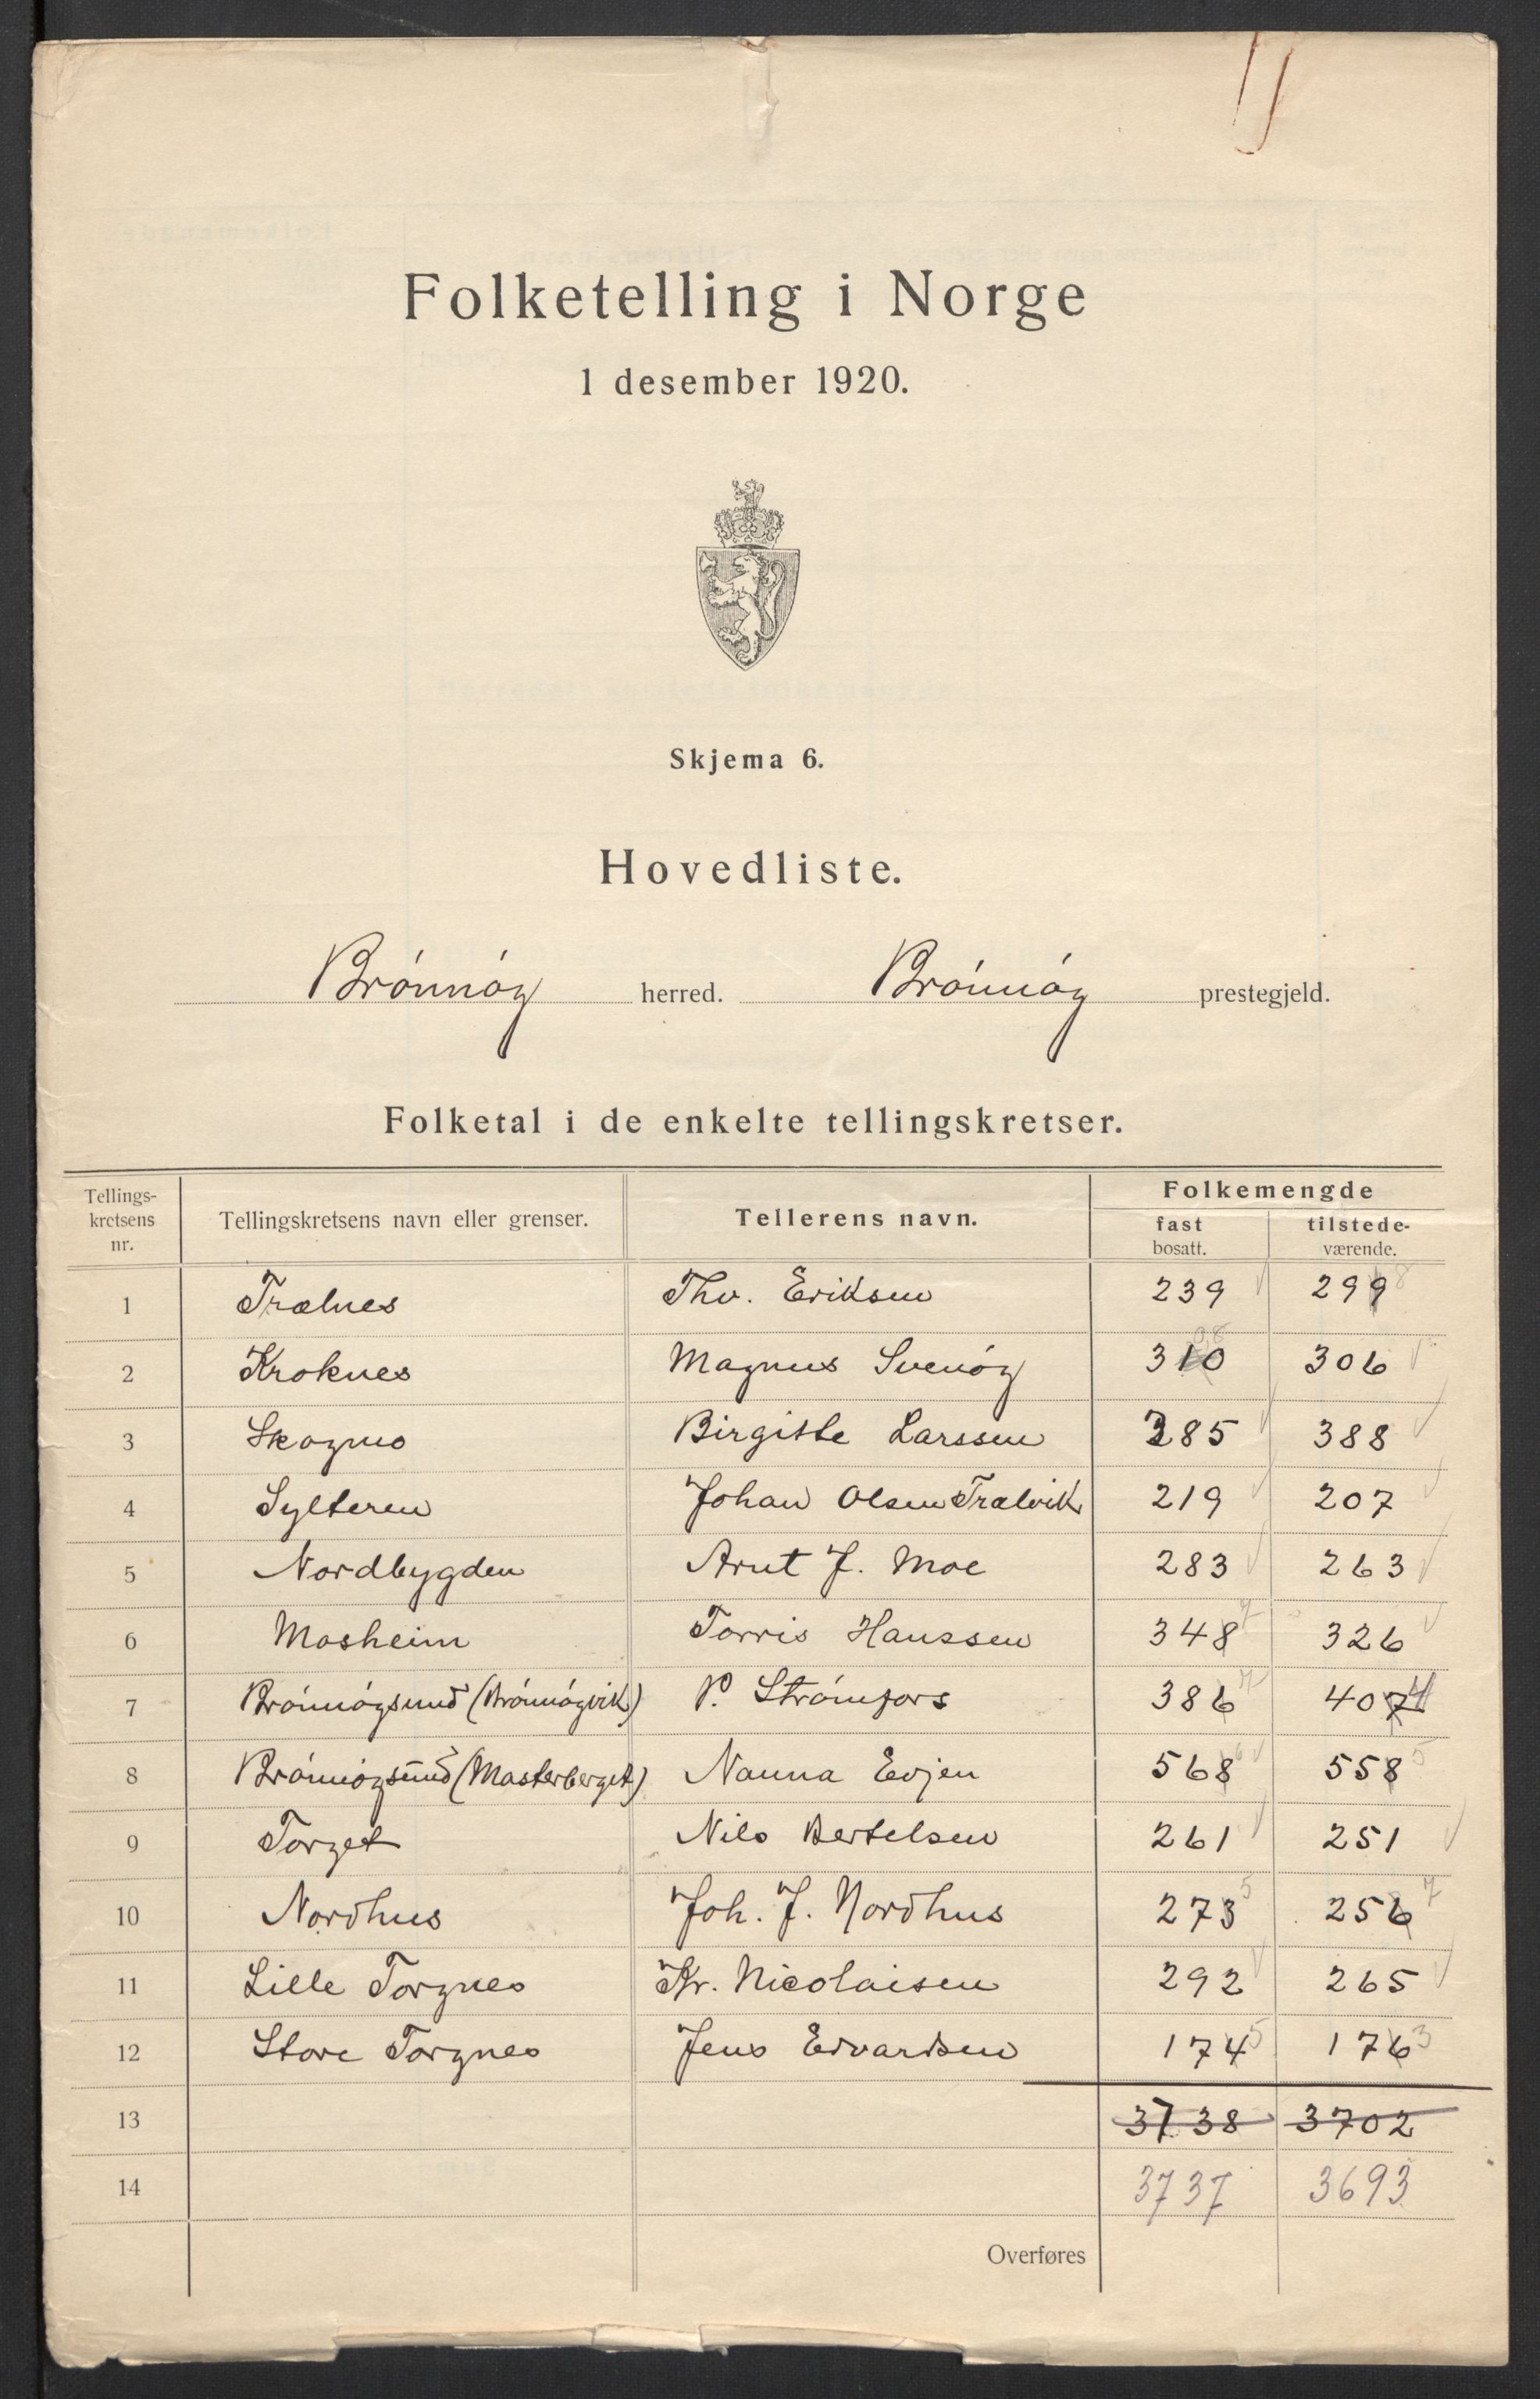 Folketelling i Norge
1 desember 1920.
Skjema 6.
Hovedliste.
Brónnóy herred. Brónnóy prestegjeld.
Folketal i de enkelte tellingskretser.
Tellings-kretsens nr. Tellingskretsens navn eller grenser. Tellerens navn. Folkemengde fast bosatt. tilstede-værende.
1 Trælnes Thv. Eriksen 239 299 8
2 Kroknes Magnus Svenóy 310 08 306
3 Skogmo Birgitte Larssen 385 388
4 Sylteren Johan Olsen Trælvik 219 207
5 Nordbygden Arnt J. Moe 283 263
6 Mosheim Torris Hanssen 348 7 326
7 Brónnóysund (Brónnóyvik) P. Strómfors 386 7 407 4
8 Brónnóysund (Mosterberget) Nanna Evjen 568 6 558 5
9 Torget Nils Bertelsen 261 251
10 Nordhus Joh. J. Nordhus 273 5 256 7
11 Lille Torgnes Kr. Nicolaisen 292 265
12 Store Torgnes Jens Edvardsen 174 5 176 3
13 3738 3702
14 3737 3693
Overføres